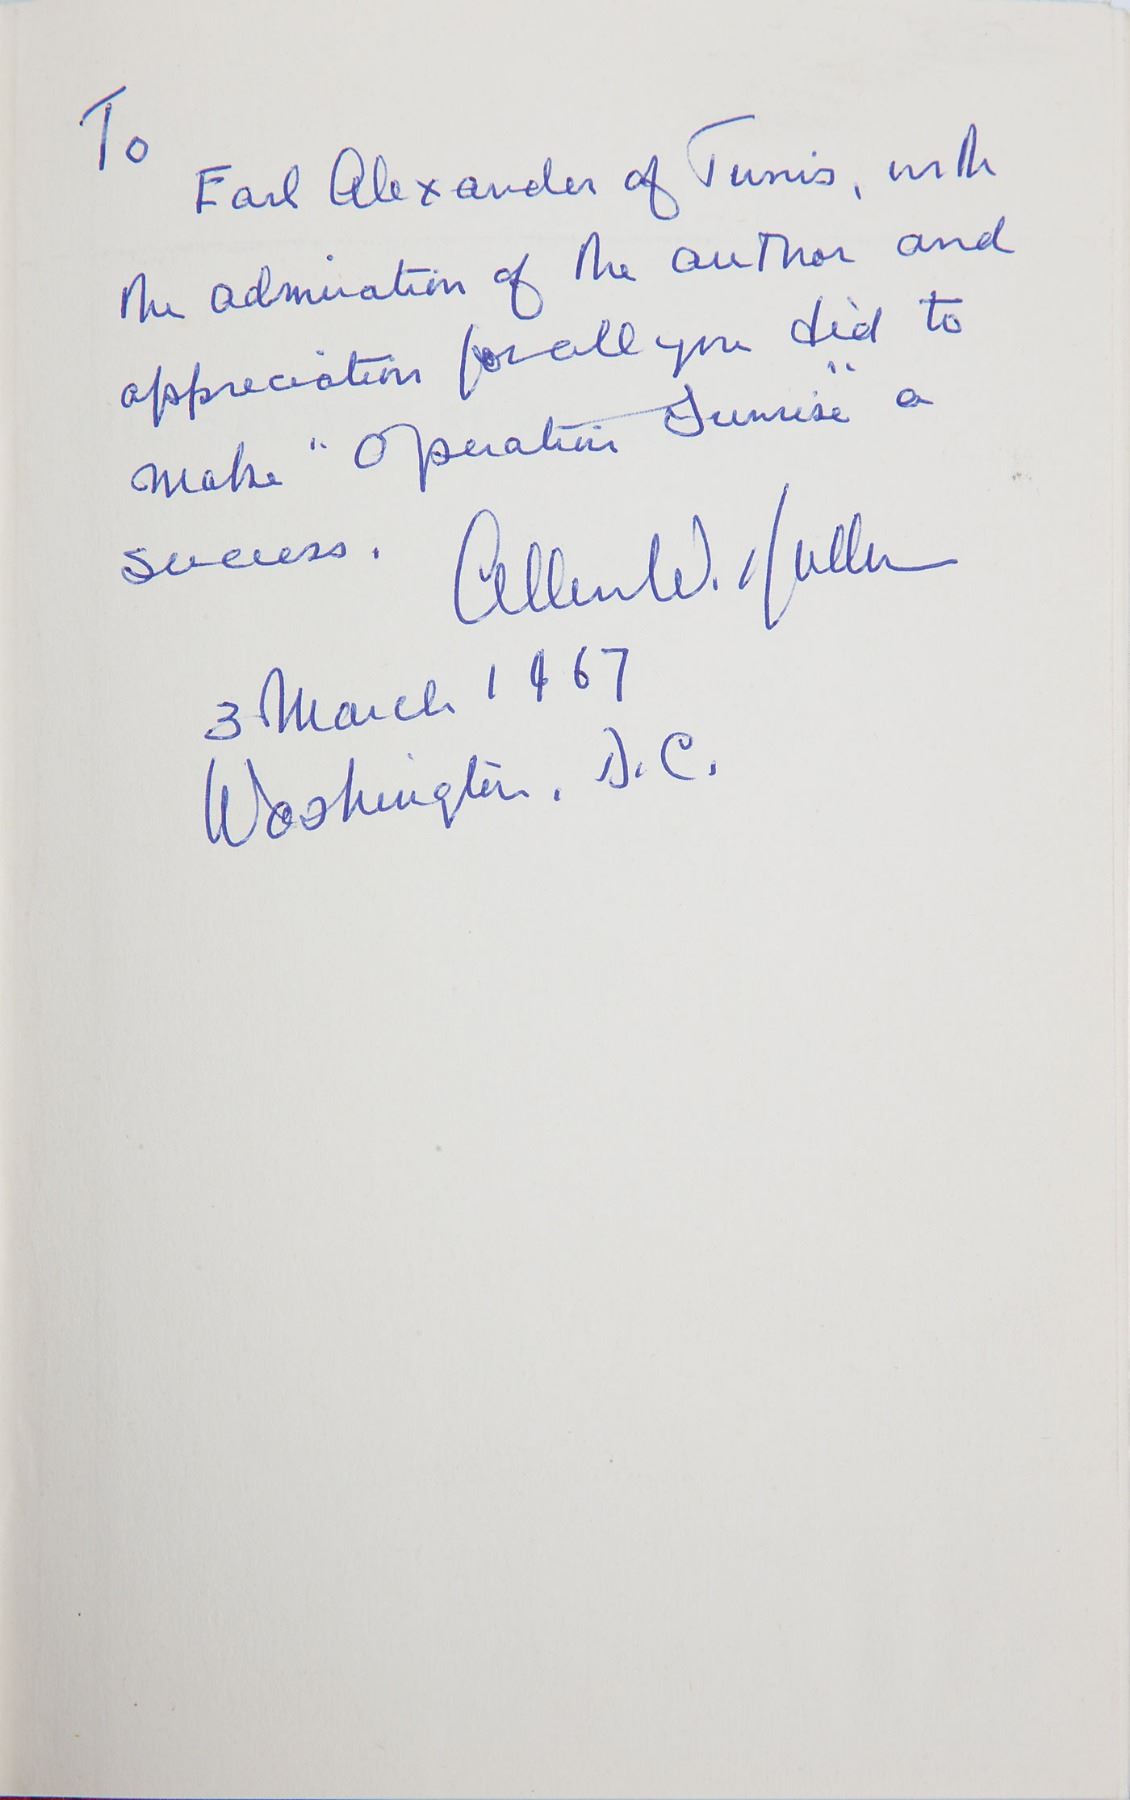 To
Earl Alexander of Tunis, with
the admiration of the author and
appreciation for all you did to
make "Operation Sunrise" a
success. Allen W. Dulles
3 March 1967
Washington, D.C.